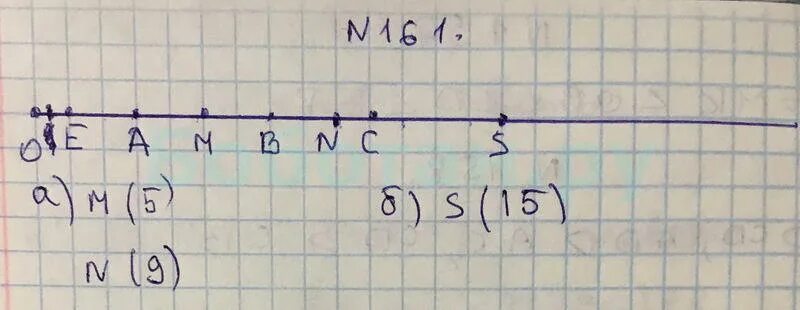 N161.
O E A M B N C S
а) M (5) б) S (15)
N (9)